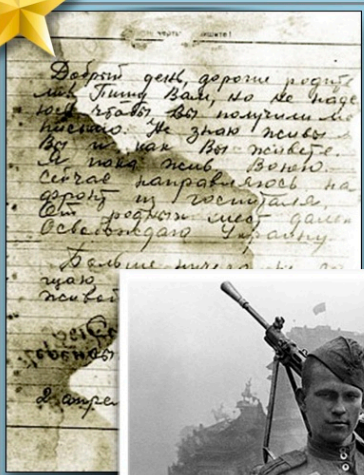 Добрый день, дорогие родите
ли Пишу Вам, но не наде
юсь чтобы Вы получили мо
письмо. Не знаю живы
Вы и как Вы живете.
Я пока жив. Воюю.
Сейчас направляюсь на
фронт из госпиталя.
От родных мест далек
Освобождаю Украину
Больше ничего не
щаю
живой
2 апрел